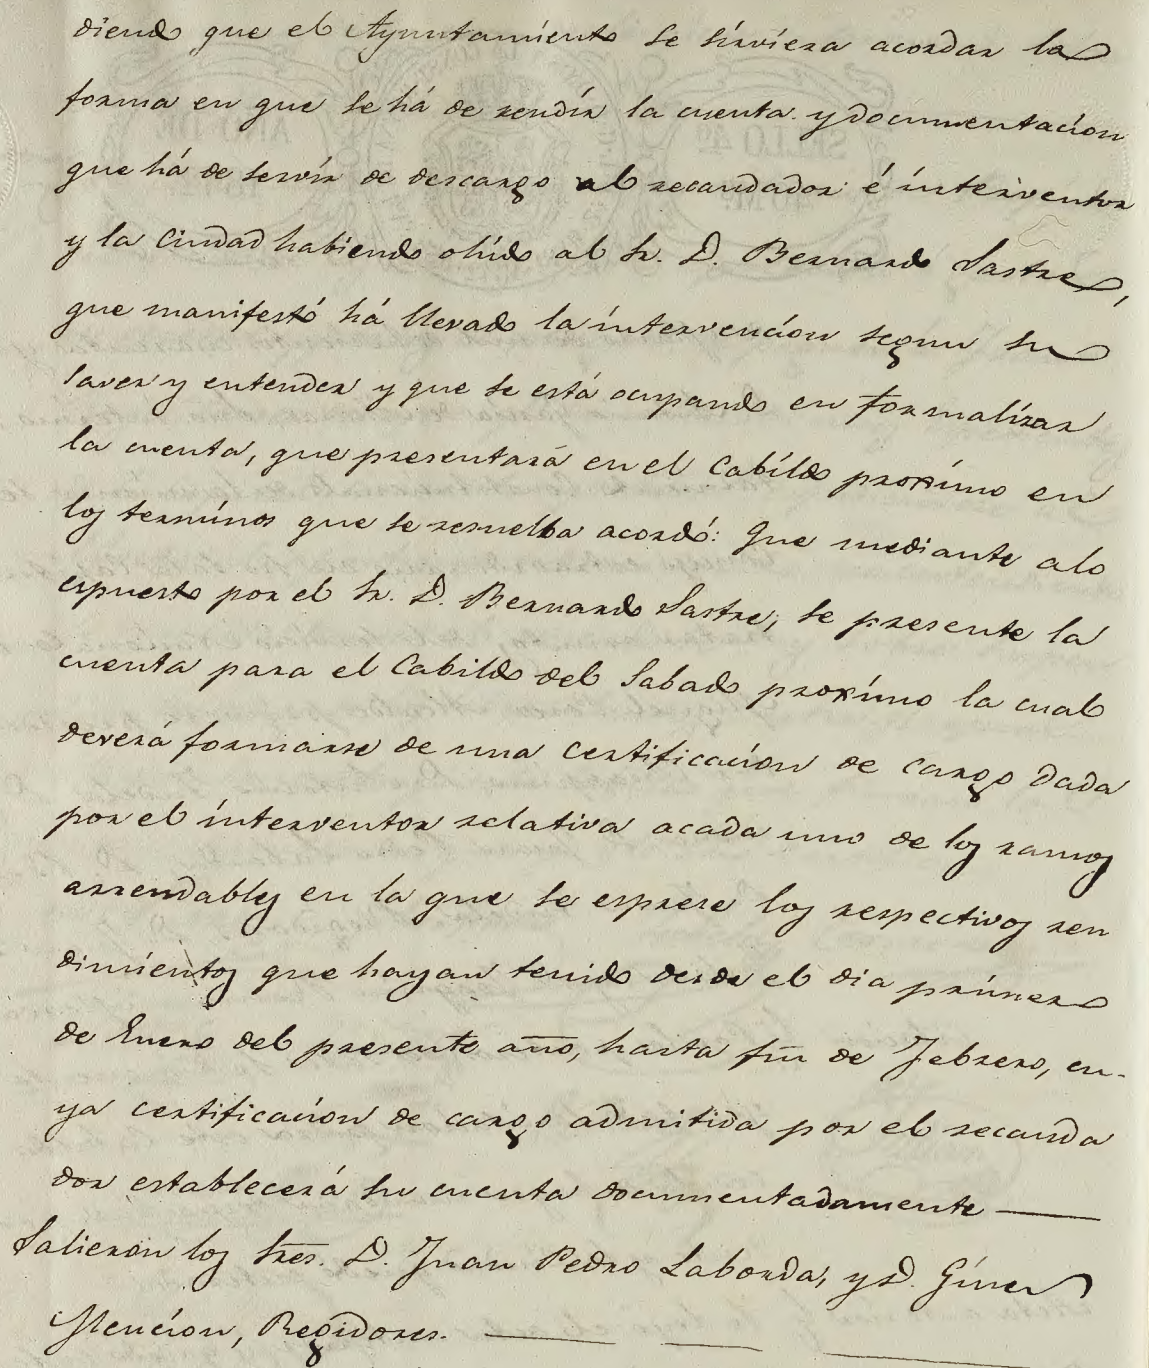 diendo que el Ayuntamiento se sirviera acordar la
forma en que se há de rendír la cuenta y documentacion
que há de servír de descargo al recaudador é interventor
y la Ciudad habiendo ohido al Sr. D. Bernardo Sastre,
que manifestó há llevado la intervencion segun su
saver y entender y que se está ocupando en formalizar
la cuenta, que presentará en el Cabildo proxímo en
los terminos que se resuelba acordó: Que mediante alo
espuesto por el Sr. D. Bernardo Sastre, se presente la
cuenta para el Cabildo del Sabado proxímo la cual
deverá formarse de una certificacion de cargo dada
por el interventor relativa acada uno de los ramos
arrendables en la que se esprese los respectivos ren
dimientos que hayan tenido desde el dia primero
de Enero del presente año, hasta fin de Febrero, cu-
ya certificacion de cargo admitida por el recauda
dor establecerá su cuenta documentadamente
Salieron los Sres. D. Juan Pedro Laborda, y D. Giner
Mencion, Regidores.